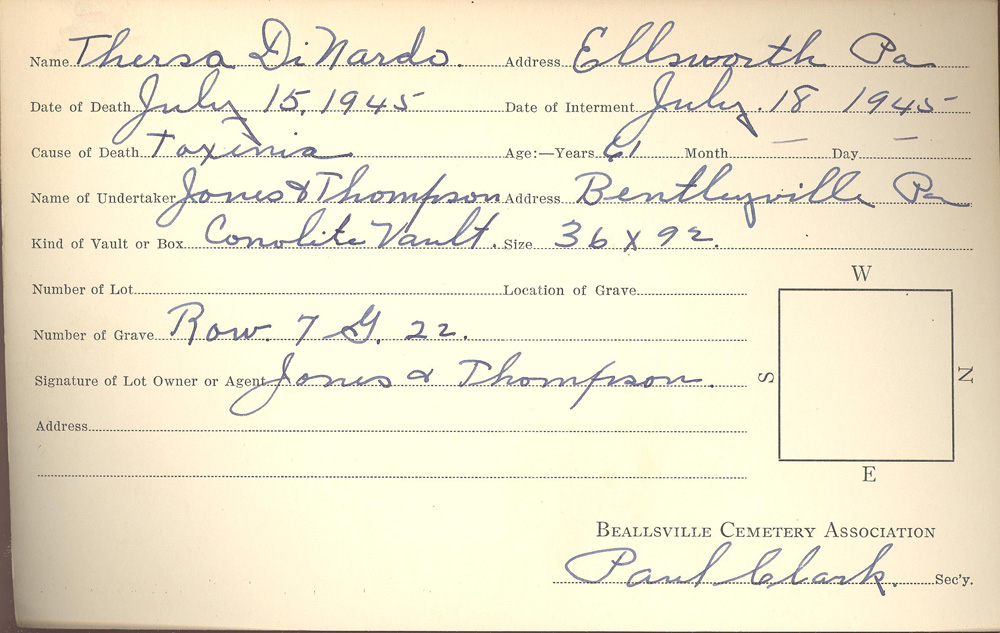 Name Thersa DiNardo. Address Ellsworth Pa
Date of Death July 15, 1945 Date of Interment July. 18 1945
Cause of Death Toxinia Age:—Years 61 Month — Day —
Name of Undertaker Jones & Thompson Address Bentleyville Pa
Kind of Vault or Box Conolite Vault. Size 36 X 92.
Number of Lot Location of Grave
W
Number of Grave Row. 7 G. 22.
Signature of Lot Owner or Agent Jones & Thompson.
S N
Address
E
BEALLSVILLE CEMETERY ASSOCIATION
Paul Clark. Sec'y.